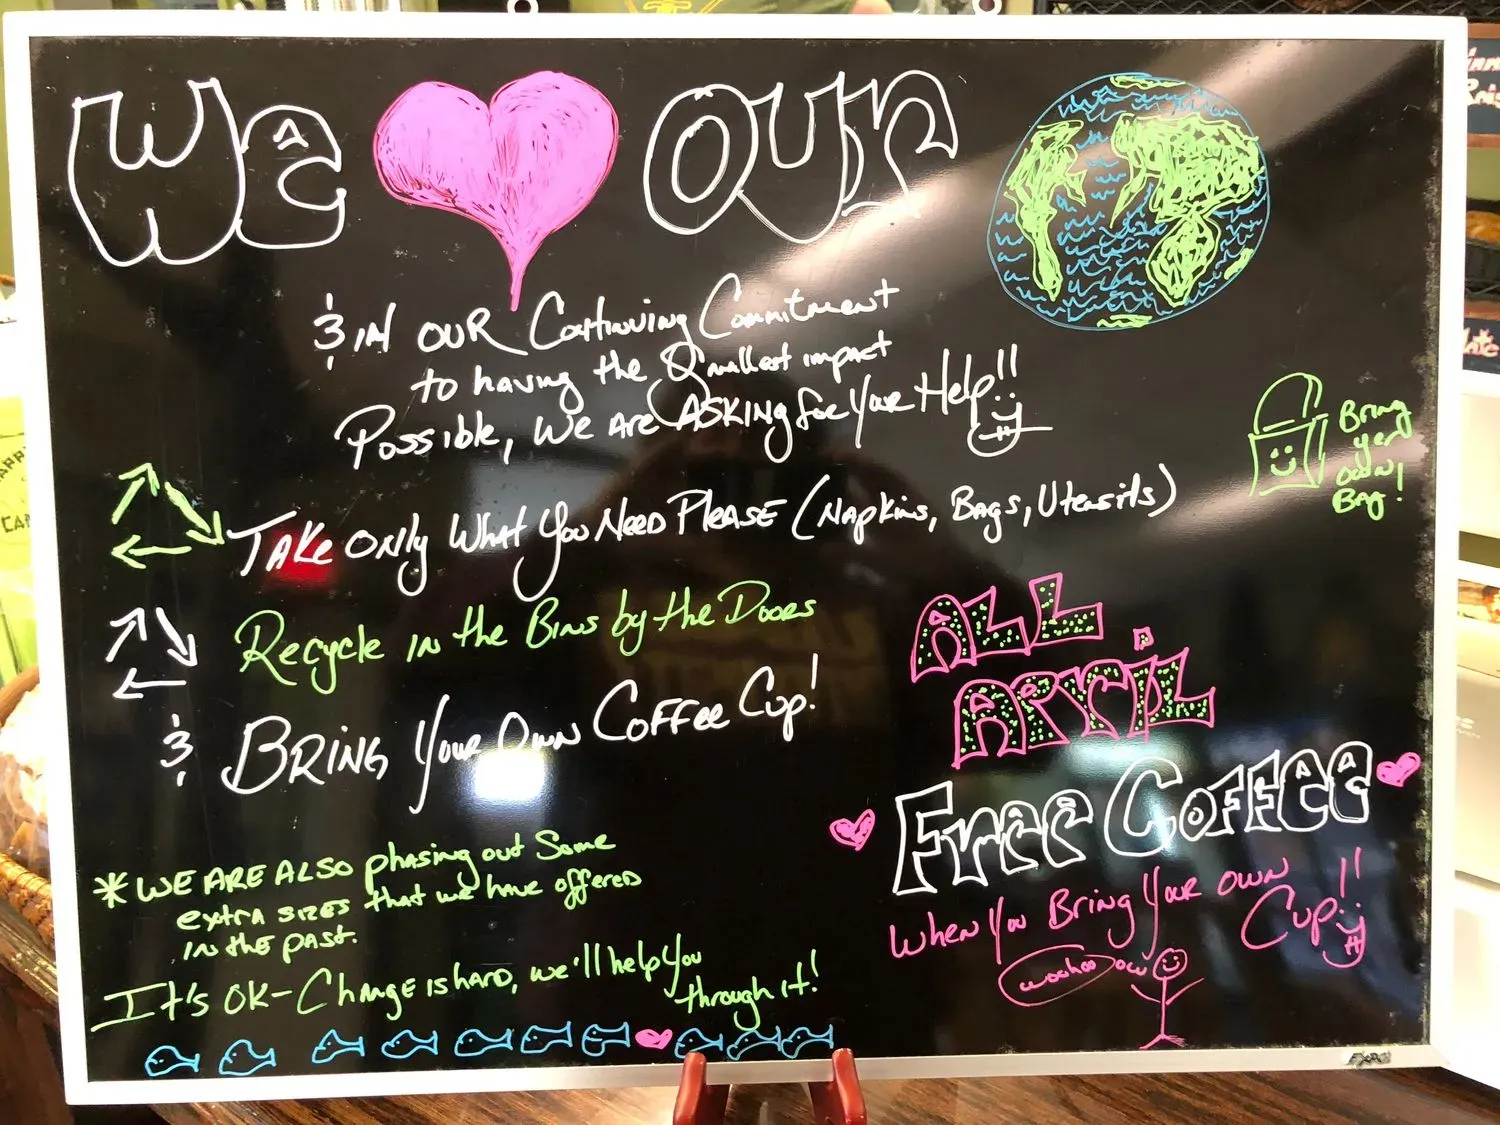 We our
& in our Continuing Commitment
to having the Smallest impact
Possible, We are Asking for Your Help!!
Bring
yer
own
Bag!
Take only What You Need Please (Napkins, Bags, Utensils)
Recycle in the Bins by the Doors
& Bring Your Own Coffee Cup!
All
April
Free Coffee
When You Bring Your own
Cup!!
woohoo
* We are also phasing out Some
extra sizes that we have offered
in the past.
It's OK - Change is hard, we'll help you
through it!